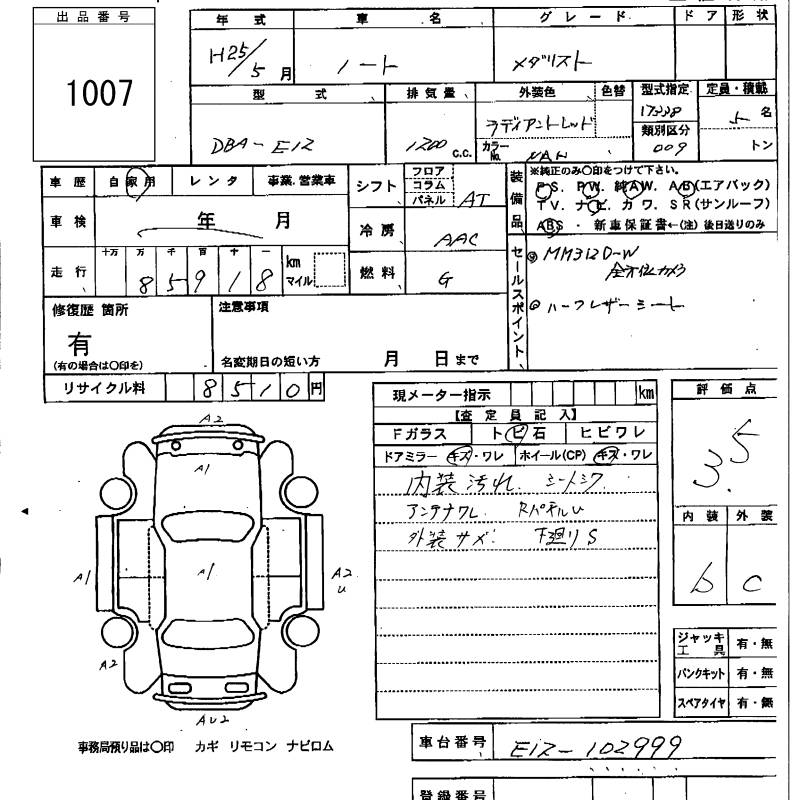 出品番号
1007
年式 車名 グレード ドア 形状
H25/5月 ノート メダリスト
型式 排気量 外装色 色替 型式指定 定員・積載
DBA-E12 1200 c.c. ラディアントレッド カラーNo. NAH 17538 類別区分 009 5名 トン
車歴 自家用 レンタ 事業.営業車
車検 年 月
走行 十万 万 千 百 十 一 km マイル
85918
シフト フロア コラム パネル AT
冷房 AAC
燃料 G
装備品 ※純正のみ〇印をつけて下さい。
PS. PW. 純AW. AB(エアバック)
TV. ナビ. カワ. SR(サンルーフ)
ABS ・ 新車保証書←(注)後日送りのみ
セールスポイント
MM312D-W
全方位カメラ
ハーフレザーシート
修復歴 箇所
有
(有の場合は〇印を)
注意事項
名変期日の短い方 月 日まで
リサイクル料 8510円
現メーター指示 km
【査定員記入】
Fガラス ト ビ 石 ヒビワレ
ドアミラー キズ・ワレ ホイール(CP) キズ・ワレ
内装汚れ. シートシワ
アンテナワレ Rパネルu
外装サメ. 下廻りS
評価点
3.5
内装 外装
b c
ジャッキ工具 有・無
パンクキット 有・無
スペアタイヤ 有・無
A2
A1
A1
A1
A2
u
A2
AU2
事務局預り品は〇印 カギ リモコン ナビロム
車台番号 E12-102999
登録番号